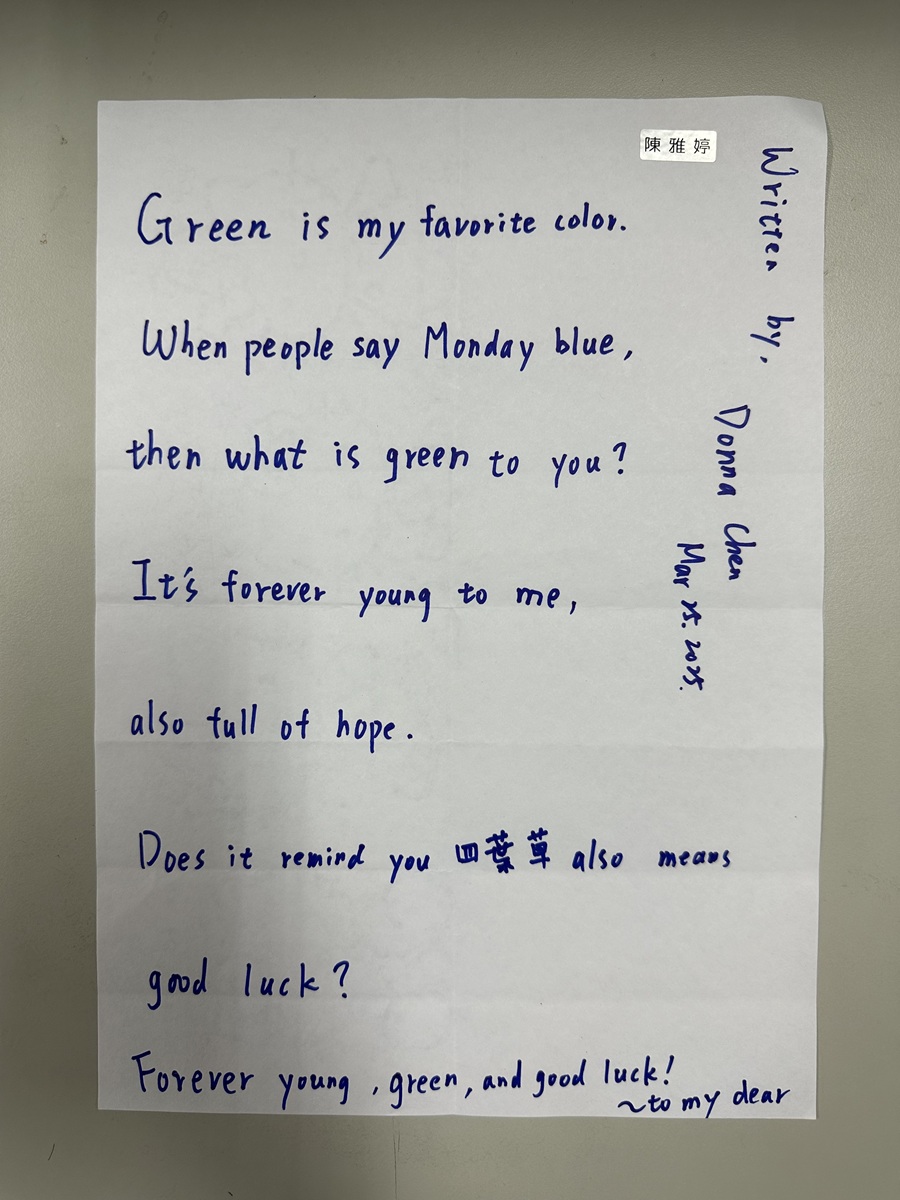 陳雅婷
Green is my favorite color.
When people say Monday blue,
then what is green to you?
It's forever young to me,
also full of hope.
Does it remind you 四葉草 also means
good luck?
Forever young, green, and good luck!
~to my dear
Written by, Donna Chen
Mar 25. 2025.